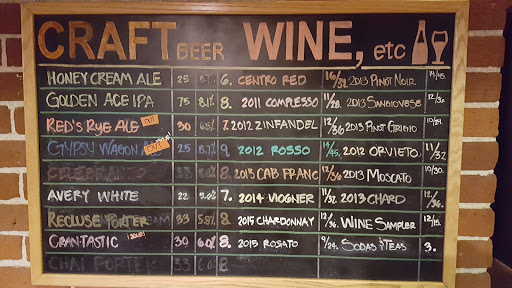 CRAFT BEER WINE, etc
HONEY CREAM ALE 25 5.7% 6. CENTRO RED 16/39. 2013 PINOT NOIR 14/45.
GOLDEN ACE IPA 75 8.1% 8. 2011 COMPLESSO 11/28. 2013 SANGIOVESE 12/30.
RED'S RYE ALE OUT 30 6.5% 7. 2012 ZINFANDEL 12/36 2013 PINOT GRIGIO 10/29.
GYPSY WAGON OUT 25 5.7% 9. 2012 ROSSO 14/45. 2012 ORVIETO 11/32
8. 2013 CAB FRANC 2013 MOSCATO 10/30.
AVERY WHITE 22 5.0% 7. 2014 VIOGNIER 11/32 2013 CHARD 12/36.
RECLUSE PORTER 33 5.8% 8. 2015 CHARDONNAY 12/36. WINE SAMPLER 12/15.
CRAN-TASTIC SOUR! 30 6.0% 8. 2015 ROSATO 9/24. SODAS & TEAS 3.
CHAI PORTER 33 6.0 8